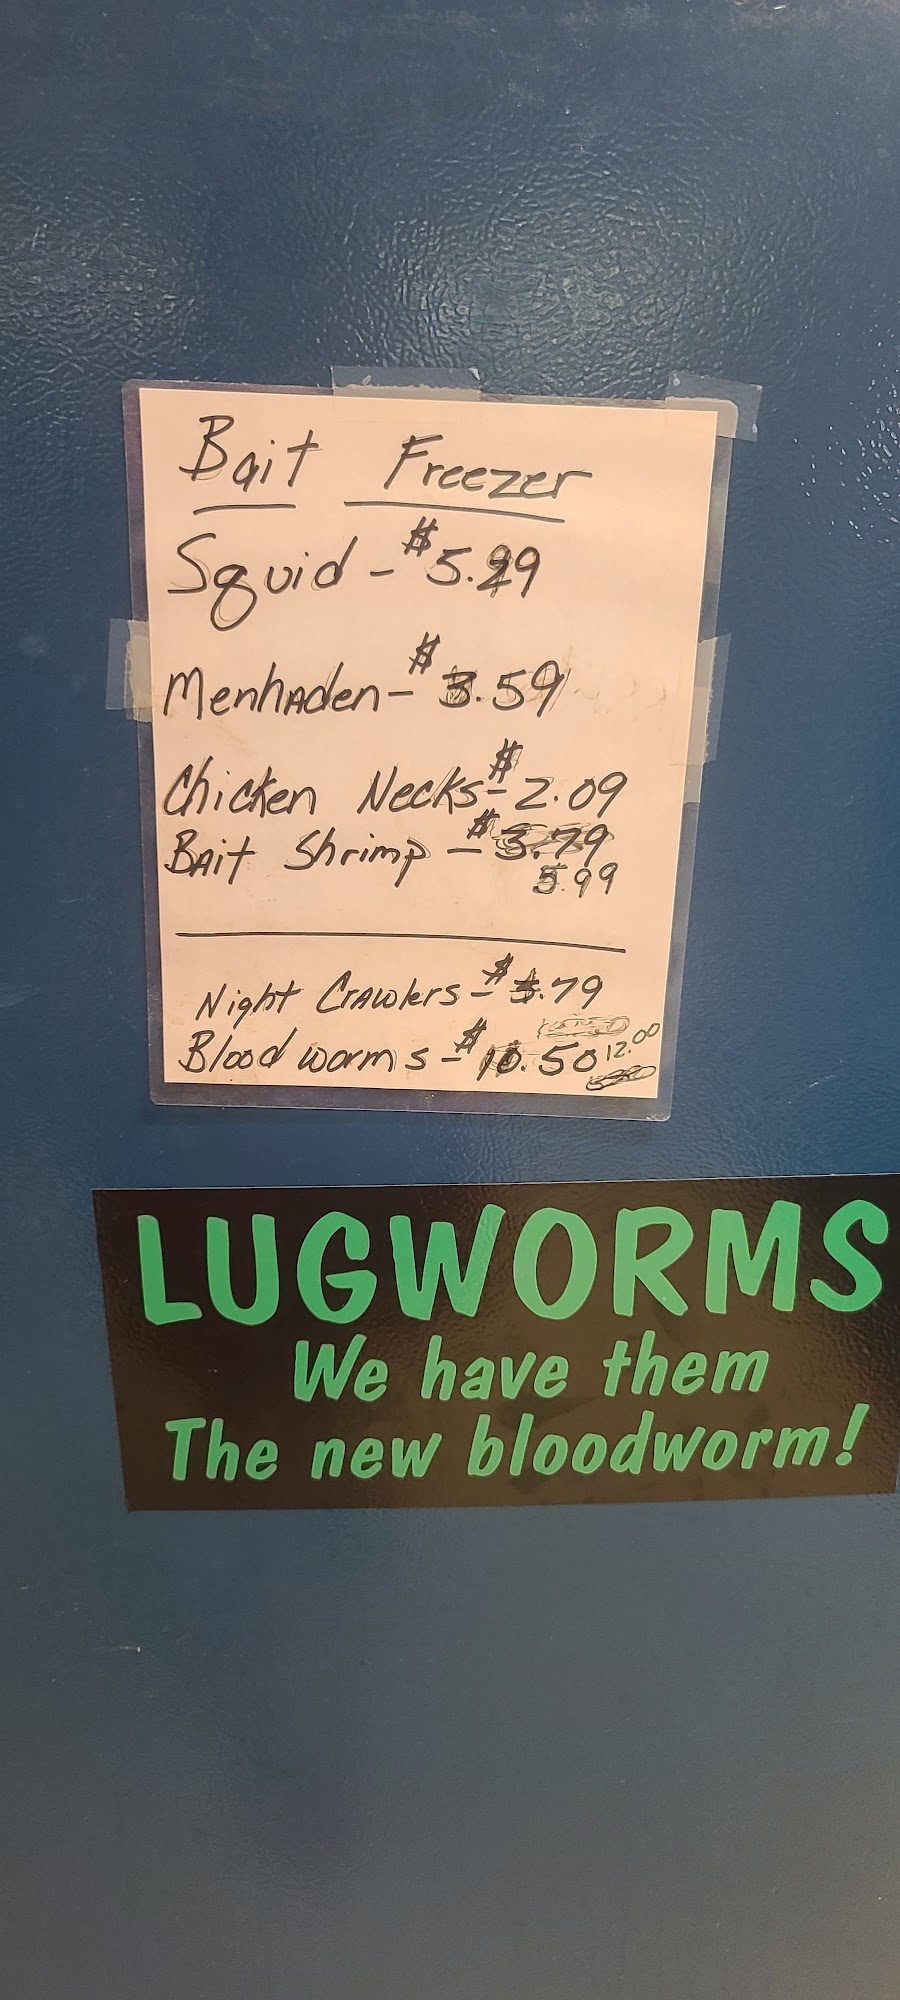 Bait Freezer
Squid - $5.29
Menhaden - $3.59
Chicken Necks - $2.09
Bait Shrimp - $3.79
5.99
Night Crawlers - $3.79
Blood worms - $10.50 12.00
LUGWORMS
We have them
The new bloodworm!